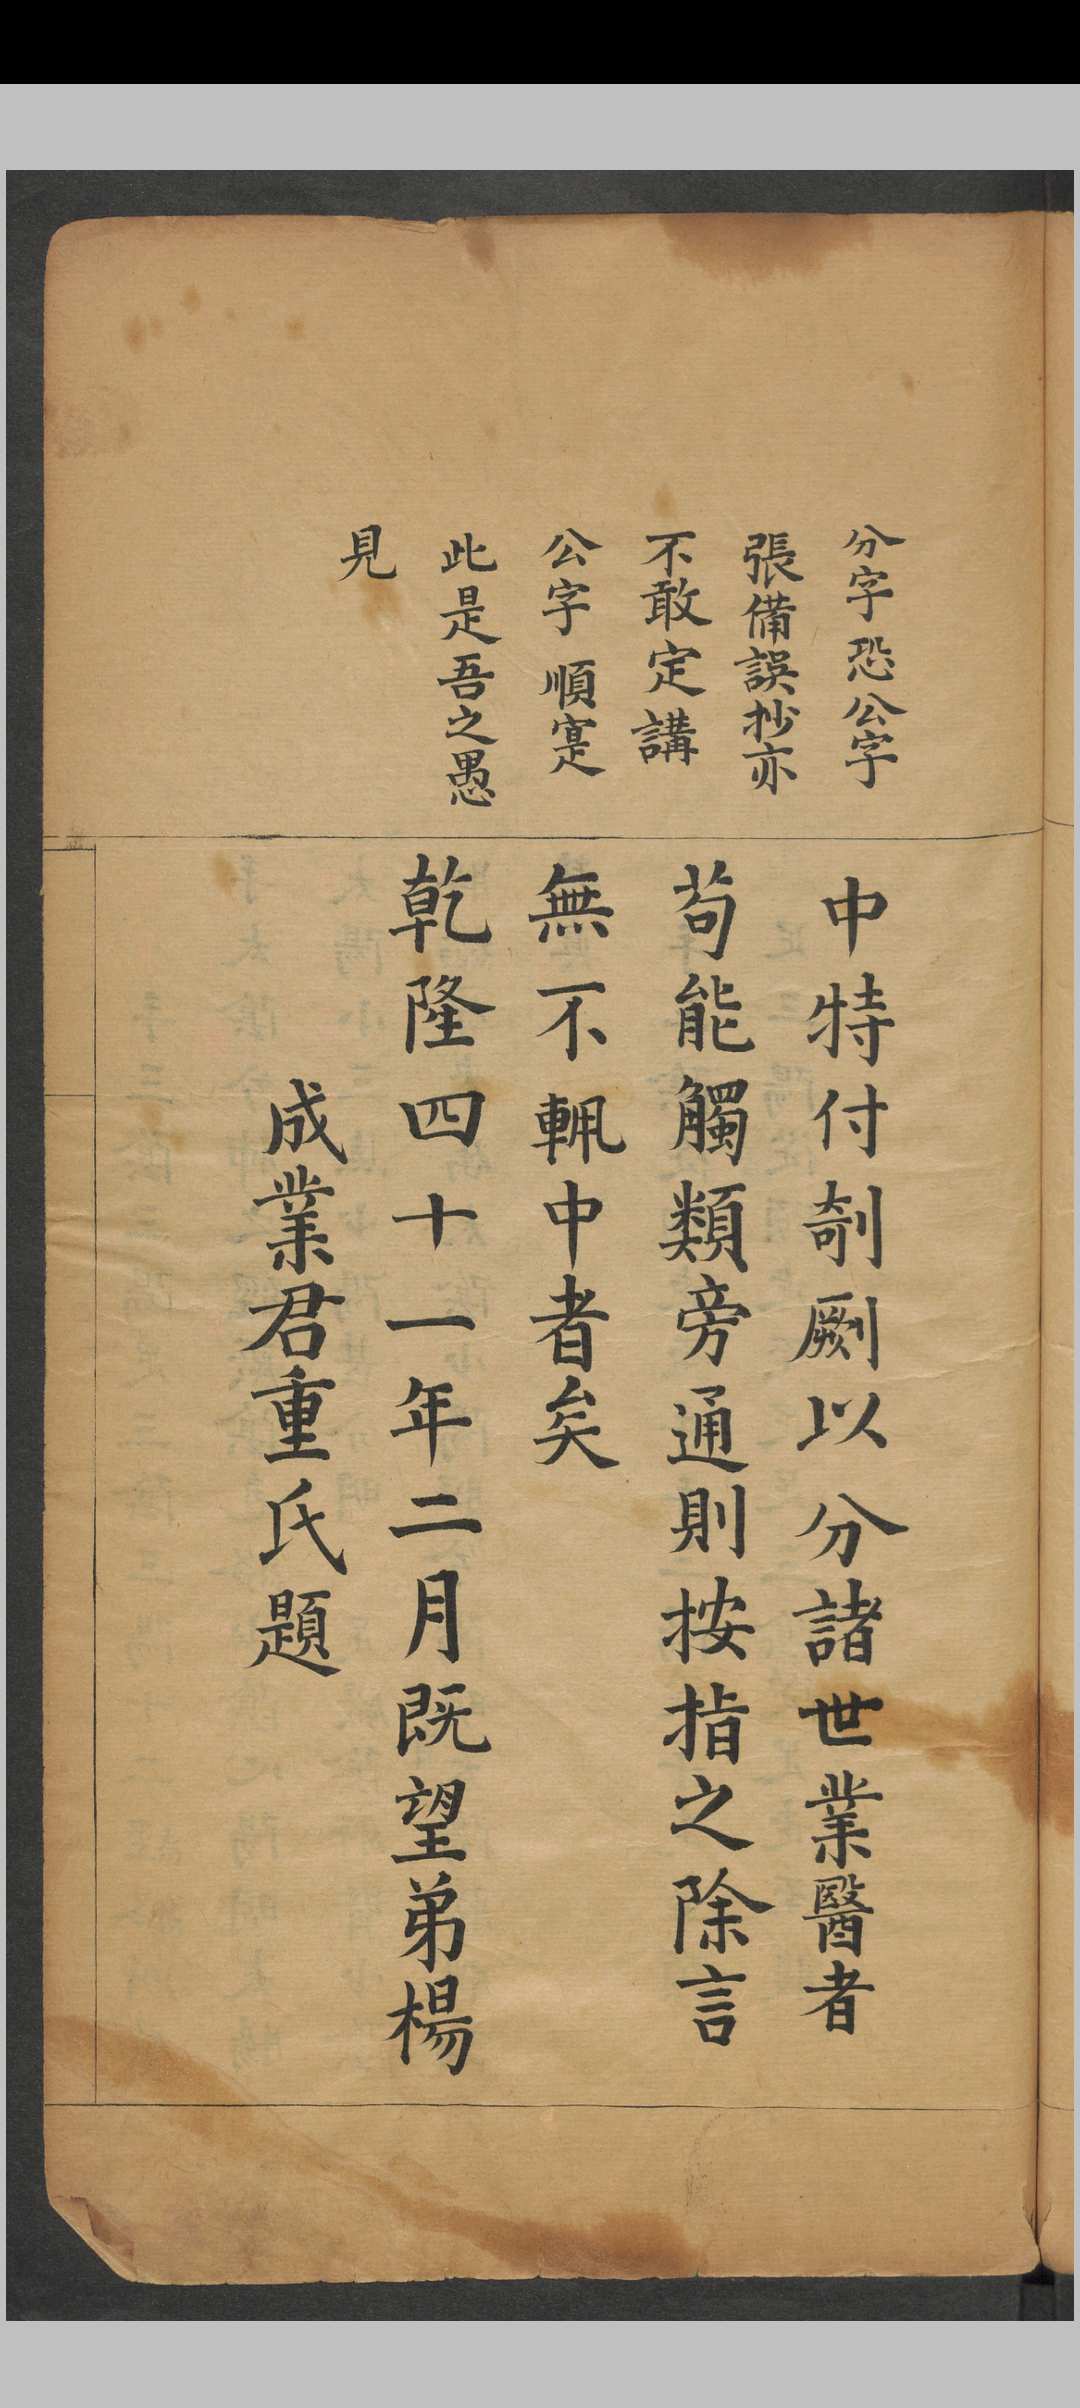 分字恐公字
張備誤抄亦
不敢定講
公字順寔
此是吾之愚
見
中特付剞劂以分諸世業醫者
苟能觸類旁通則按指之除言
無不輒中者矣
乾隆四十一年二月既望弟楊
成業君重氏題